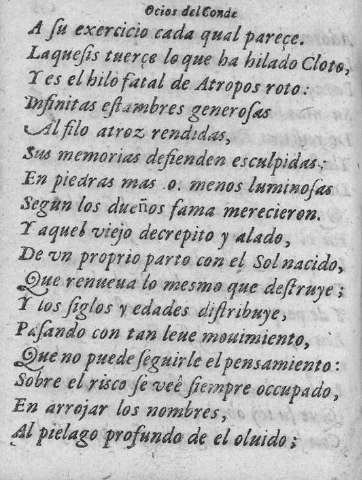 Ocios del Conde
A su exercicio cada qual pareçe.
Laquesis tuerçe lo que ha hilado Cloto,
Y es el hilo fatal de Atropos roto:
Infinitas estambres generosas
Al filo atroz rendidas,
Sus memorias defienden esculpidas;
En piedras mas .o. menos luminosas
Según los dueños fama merecieron.
Y aquel viejo decrepito y alado,
De vn proprio parto con el Sol nacido,
Que renueua lo mesmo que destruye;
Y los siglos y edades distribuye,
Pasando con tan leue mouimiento,
Que no puede seguirle el pensamiento:
Sobre el risco se veè siempre occupado,
En arrojar los nombres,
Al pielago profundo de el oluido;